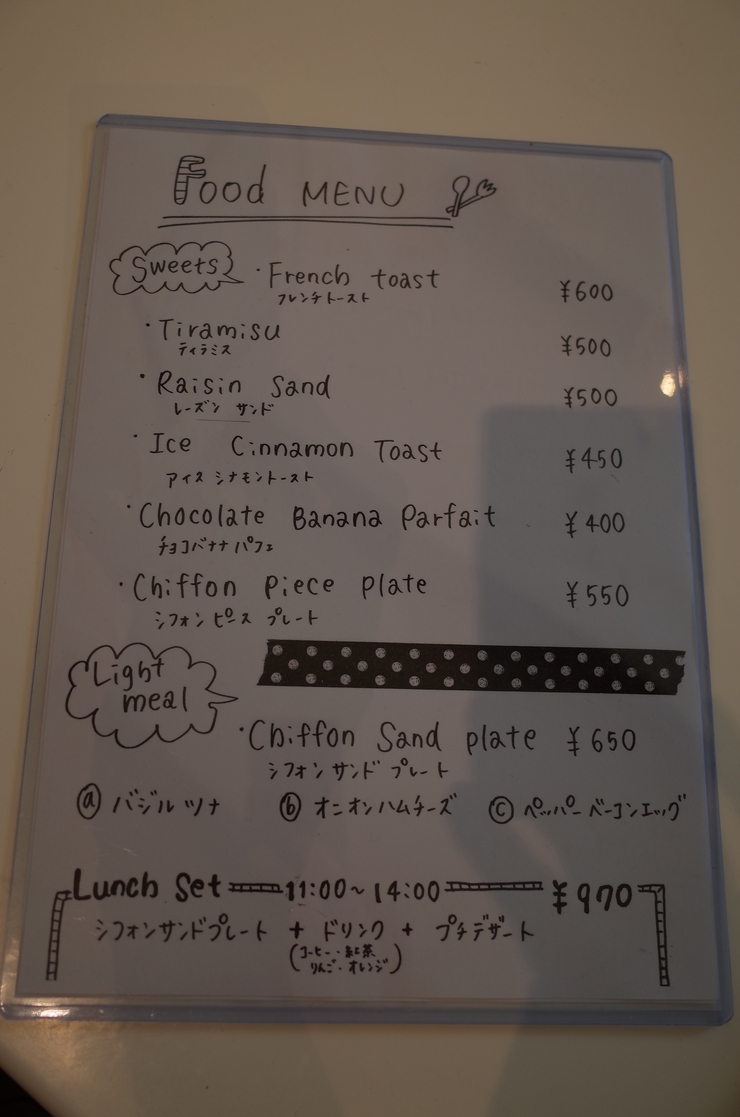 Food MENU
Sweets ・French toast ¥600
フレンチトースト
・Tiramisu ¥500
ティラミス
・Raisin Sand ¥500
レーズン サンド
・Ice Cinnamon Toast ¥450
アイス シナモントースト
・Chocolate Banana Parfait ¥400
チョコバナナ パフェ
・Chiffon Piece Plate ¥550
シフォン ピース プレート
Light
meal
・Chiffon Sand plate ¥650
シフォン サンド プレート
ⓐ バジル ツナ ⓑ オニオンハムチーズ ⓒ ペッパー ベーコンエッグ
Lunch Set 11:00~14:00 ¥970
シフォンサンドプレート + ドリンク + プチデザート
(コーヒー・紅茶
りんご・オレンジ)